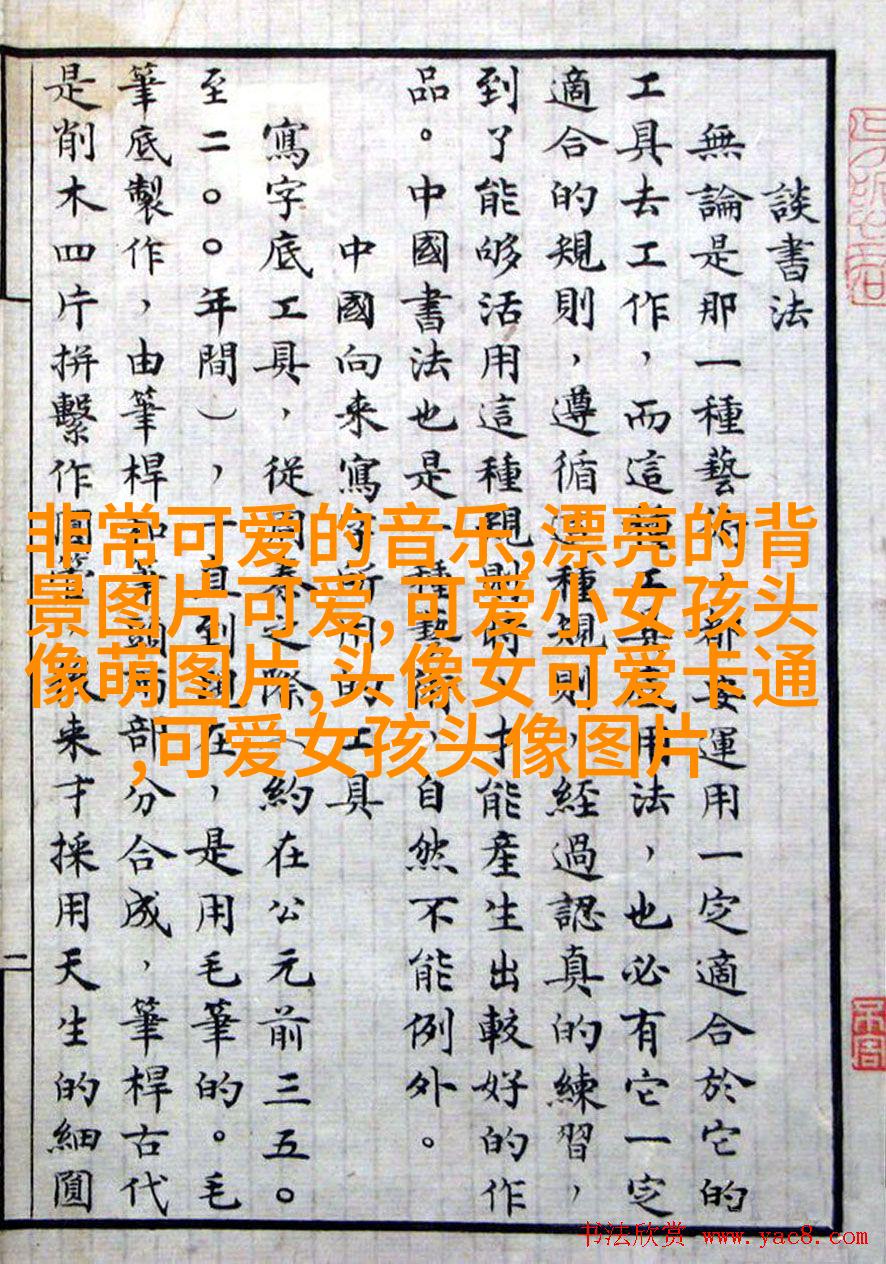 談書法
無論是那一種藝術，都要運用一定適合於它的
工具去工作，而這種工具底用法，也必有它一定
適合的規則，遵循這種規則，經過認真的練習，
到了能够活用這種規則時，才能產生出較好的作
品。中國書法也是一種藝術，自然不能例外。
中國向来寫字所用的工具
寫字底工具，從周秦之際（約在公元前三五〇
至二〇〇年間），一直到現在，是用毛筆的。毛
筆底製作，由筆桿和筆頭兩部分合成，筆桿古代
是削木四片拼繫作圓筒，後来才採用天生的細圓
二
非常可爱的音乐,漂亮的背
景图片可爱,可爱小女孩头
像萌图片,头像女可爱卡通
,可爱女孩头像图片
书法欣赏 www.yac8.com